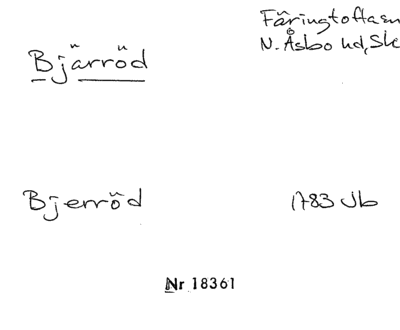 Färingtofta sn
Bjärröd
N. Åsbo hd, Sk
Bjerröd 1783 Jb
Nr 18361